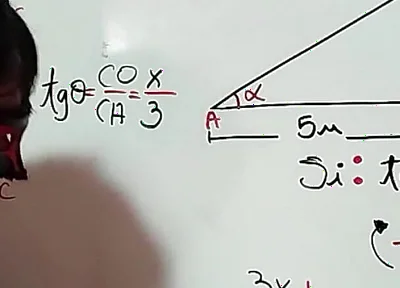 tgθ= CO/CA = x/3
α
A
5m
Si:
3x